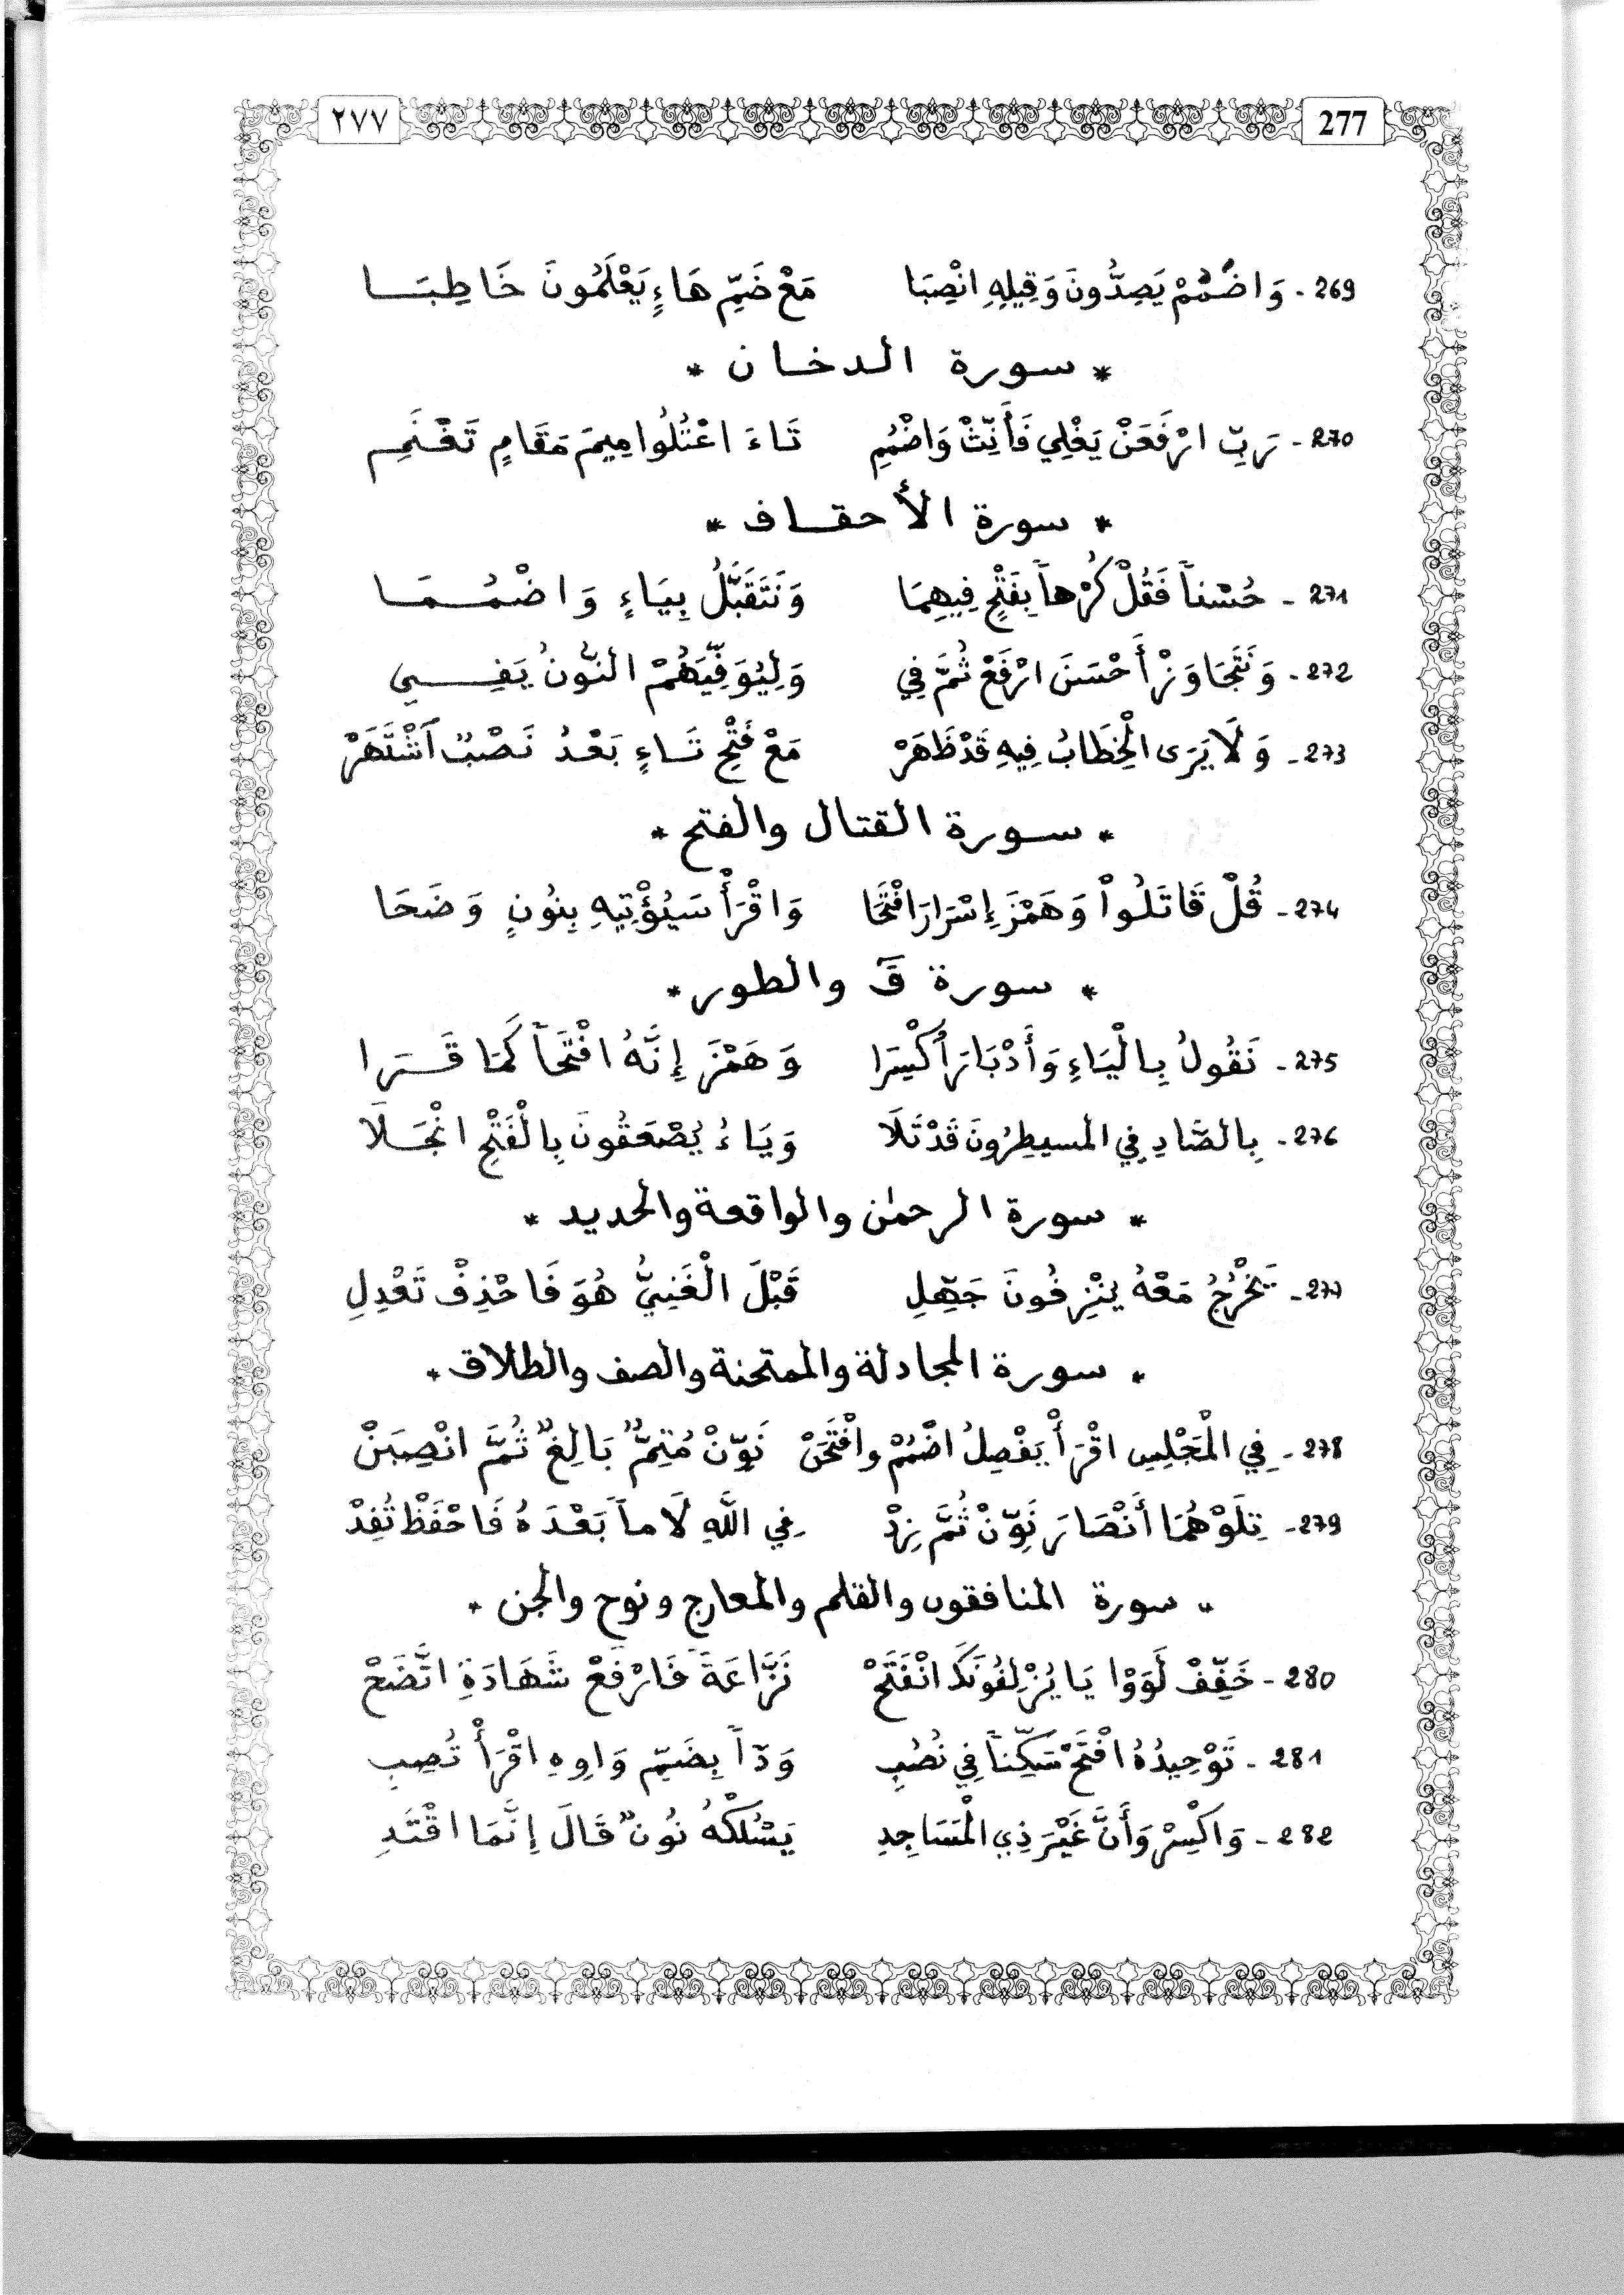 277 ٢٧٧
269- وَاضْمُمْ يَصِدُّونَ وَقِيلِهِ انْصِبَا مَعْ ضَمِّ هَاءٍ يَعْلَمُونَ خَاطِبَا
* سورة الدخان *
270- رَبِّ ارْفَعَنْ يَغْلِي فَأَنِّثْ وَاضْمُمِ تَاءَ اعْتُلُوا مِيمَ مَقَامٍ تَغْنَمِ
* سورة الأحقاف *
271- حُسْناً فَقُلْ كُرْهاً بِفَتْحٍ فِيهِمَا وَنَتَقَبَّلُ بِيَاءٍ وَاضْمُمَا
272- وَنَتَجَاوَزْ أَحْسَنَ ارْفَعْ ثُمَّ فِي وَلِيُوَفِّيَهُمْ النُّونُ يَفِي
273- وَلَا يَرَى الْخِطَابُ فِيهِ قَدْ ظَهَرْ مَعْ فَتْحِ تَاءٍ بَعْدُ نَصْبٌ اَشْتَهَرْ
* سورة القتال والفتح *
274- قُلْ قَاتَلُواْ وَهَمْزَ إِسْرَارَ افْتَحَا وَاقْرَأْ سَيُؤْتِيهِ بِنُونٍ وَضَحَا
* سورة قَ والطور *
275- نَقُولُ بِالْيَاءِ وَأَدْبَارَ اُكْسِرَا وَهَمْزَ إِنَّهُ افْتَحاً كَمَا قَرَا
276- بِالصَّادِ فِي المسيطِرُونَ قَدْ تَلَا وَيَاءُ يُصْعَقُونَ بِالْفَتْحِ انْجَلَا
* سورة الرحمٰن والواقعة والحديد *
277- يَخْرُجُ مَعْهُ يُنْزِفُونَ جَهِّلِ قَبْلَ الْغَنِيُّ هُوَ فَاحْذِفْ تَعْدِلِ
* سورة المجادلة والممتحنة والصف والطلاق *
278- فِي الْمَجْلِسِ اقْرَأْ يَفْصِلُ اضْمُمْ وافْتَحَنْ نَوِّنْ مُتِمٌّ بَالِغٌ ثُمَّ انْصِبَنْ
279- تِلَوْهُمَا أَنْصَارَ نَوِّنْ ثُمَّ زِدْ فِي اللَّهِ لَاماً بَعْدَهُ فَاحْفَظْ تُفِدْ
* سورة المنافقون والقلم والمعارج ونوح والجن *
280- خَفِّفْ لَوَوْا يَا يُزْلِفُونَكَ انْفَتَحْ نَزَّاعَةً فَارْفَعْ شَهَادَةِ اتَّضَحْ
281- تَوْحِيدُهُ افْتَحْ سَكِّناً فِي نُصُبِ وَدّاً بِضَمِّ وَاوِهِ اقْرَأْ تُصِبِ
282- وَاكْسِرْ وَأَنَّ غَيْرَ ذِي الْمَسَاجِدِ يَسْلُكْهُ نُونٌ قَالَ إِنَّمَا اقْتَدِ